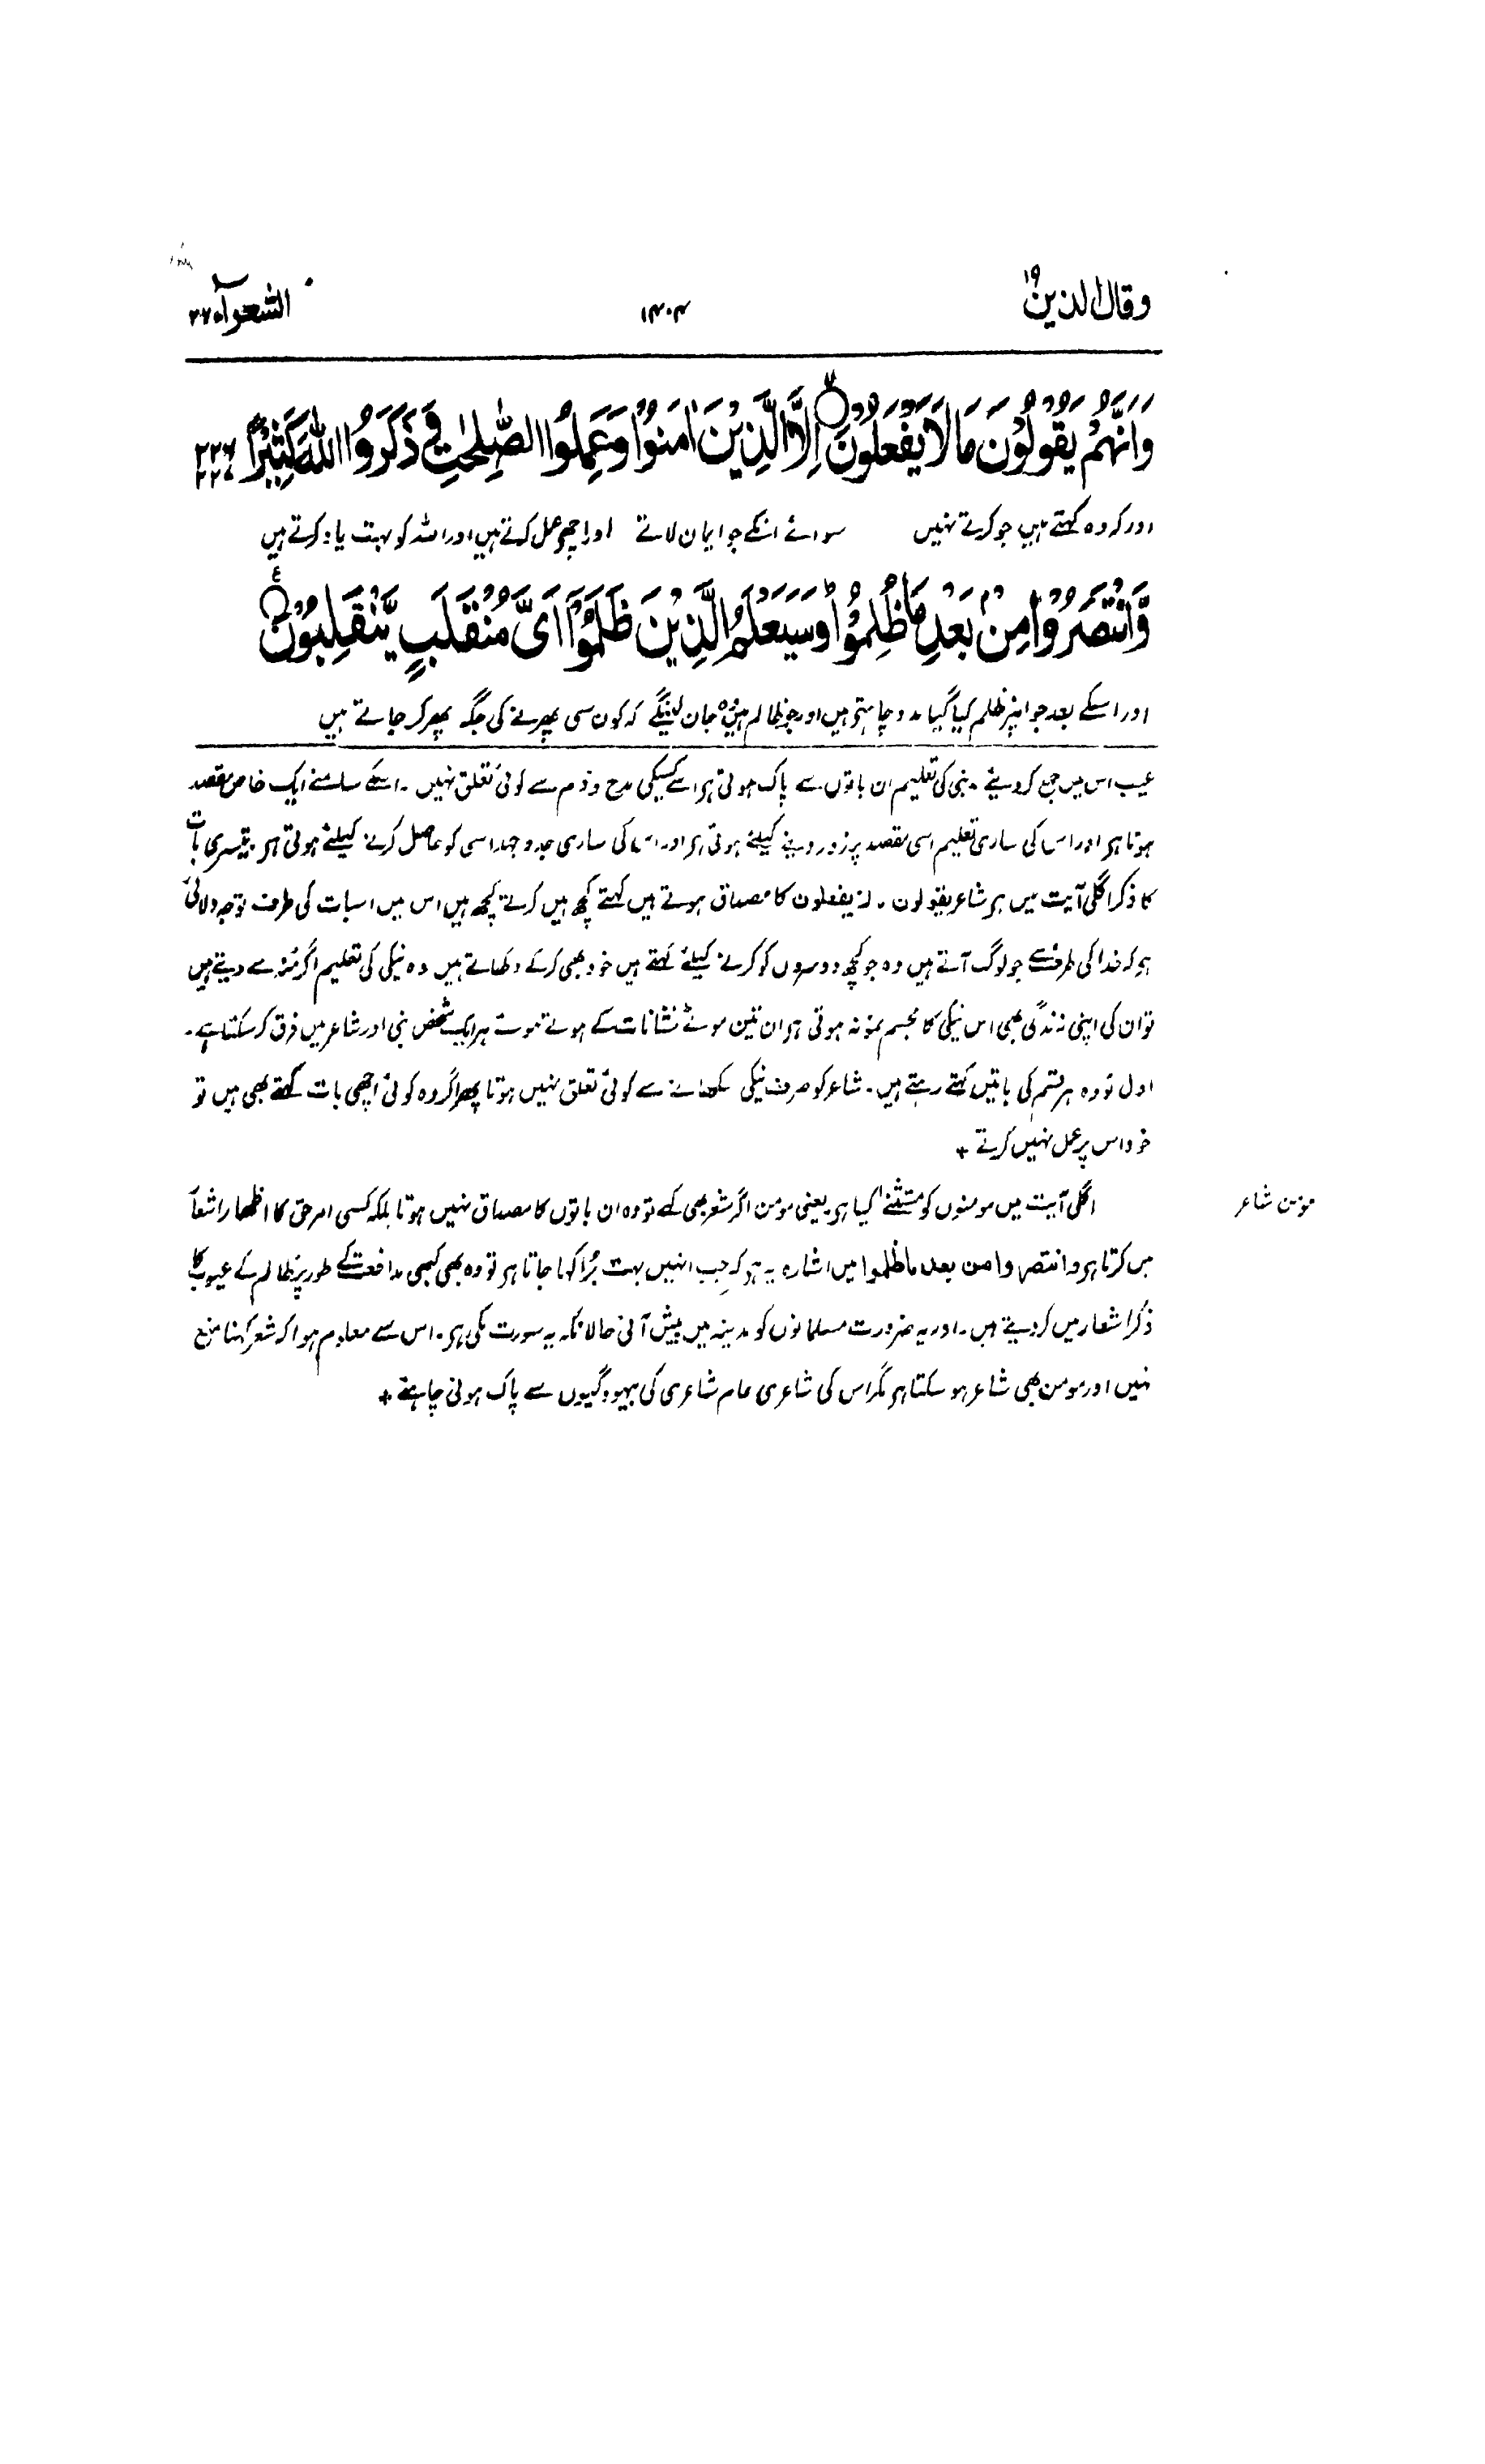 وقال الذین ۱۹
۱۴۰۴
الشعرآء ۲۶
وَاَنَّهُمْ يَقُوْلُوْنَ مَا لَا يَفْعَلُوْنَ ۙ اِلَّا الَّذِيْنَ اٰمَنُوْا وَعَمِلُوا الصّٰلِحٰتِ وَ ذَكَرُوا اللّٰهَ كَثِيْرًا ۲۲۶ ۲۲۷
اور کہ وہ کہتے ہیں جو کرتے نہیں سوائے انکے جو ایمان لاتے اور اچھے عمل کرتے ہیں اور اللہ کو بہت یاد کرتے ہیں
وَّانْتَصَرُوْا مِنْۢ بَعْدِ مَا ظُلِمُوْا ؕ وَسَيَعْلَمُ الَّذِيْنَ ظَلَمُوْۤا اَىَّ مُنْقَلَبٍ يَّنْقَلِبُوْنَ ۠ ع
اور اسکے بعد جو انپر ظلم کیا گیا مدد چاہتے ہیں اور جو ظالم ہیں وہ جان لینگے کہ کون سی پھرنے کی جگہ پھر کر جاتے ہیں
عیب اس میں جمع کر دیئے۔ نبی کی تعلیم ان باتوں سے پاک ہوتی ہے اسے کسیکی مدح و ذم سے کوئی تعلق نہیں۔ اسکے سامنے ایک خاص مقصد
ہوتا ہے اور اس کی ساری تعلیم اسی مقصد پر زور دینے کیلئے ہوتی ہے اور اس کی ساری جدوجہد اسی کو حاصل کرنے کیلئے ہوتی ہے۔ تیسری بات
کا ذکر اگلی آیت میں ہے شاعر یقولون ما لا یفعلون کا مصداق ہوتے ہیں کہتے کچھ ہیں کرتے کچھ ہیں اس میں اسبات کی طرف توجہ دلائی
ہے کہ خدا کی طرف سے جو لوگ آتے ہیں وہ جو کچھ دوسروں کو کرنے کیلئے کہتے ہیں خود بھی کرکے دکھاتے ہیں وہ نیکی کی تعلیم اگر منہ سے دیتے ہیں
تو ان کی اپنی زندگی بھی اس نیکی کا مجسم نمونہ ہوتی ہے ان تین موٹے نشانات کے ہوتے ہوئے ہر ایک شخص نبی اور شاعر میں فرق کر سکتا ہے۔
اول تو وہ ہر قسم کی باتیں کہتے رہتے ہیں۔ شاعر کو صرف نیکی سکھانے سے کوئی تعلق نہیں ہوتا پھر اگر وہ کوئی اچھی بات کہتے بھی ہیں تو
خود اس پر عمل نہیں کرتے +
مومن شاعر
اگلی آیت میں مومنوں کو مستثنےٰ کیا ہے یعنی مومن اگر شعر بھی کہے تو وہ ان باتوں کا مصداق نہیں ہوتا بلکہ کسی امر حق کا اظہار اشعار
میں کرتا ہے وانتصروا من بعد ما ظلموا میں اشارہ یہ ہے کہ جب انہیں بہت برُا کہا جاتا ہے تو وہ بھی کبھی مدافعت کے طور پر ظالم کے عیوب کا
ذکر اشعار میں کر دیتے ہیں۔ اور یہ ضرورت مسلمانوں کو مدینہ میں پیش آئی حالانکہ یہ سورت مکی ہے۔ اس سے معلوم ہوا کہ شعر کہنا منع
نہیں اور مومن بھی شاعر ہو سکتا ہے مگر اس کی شاعری عام شاعری کی بیہودگیوں سے پاک ہونی چاہئے +